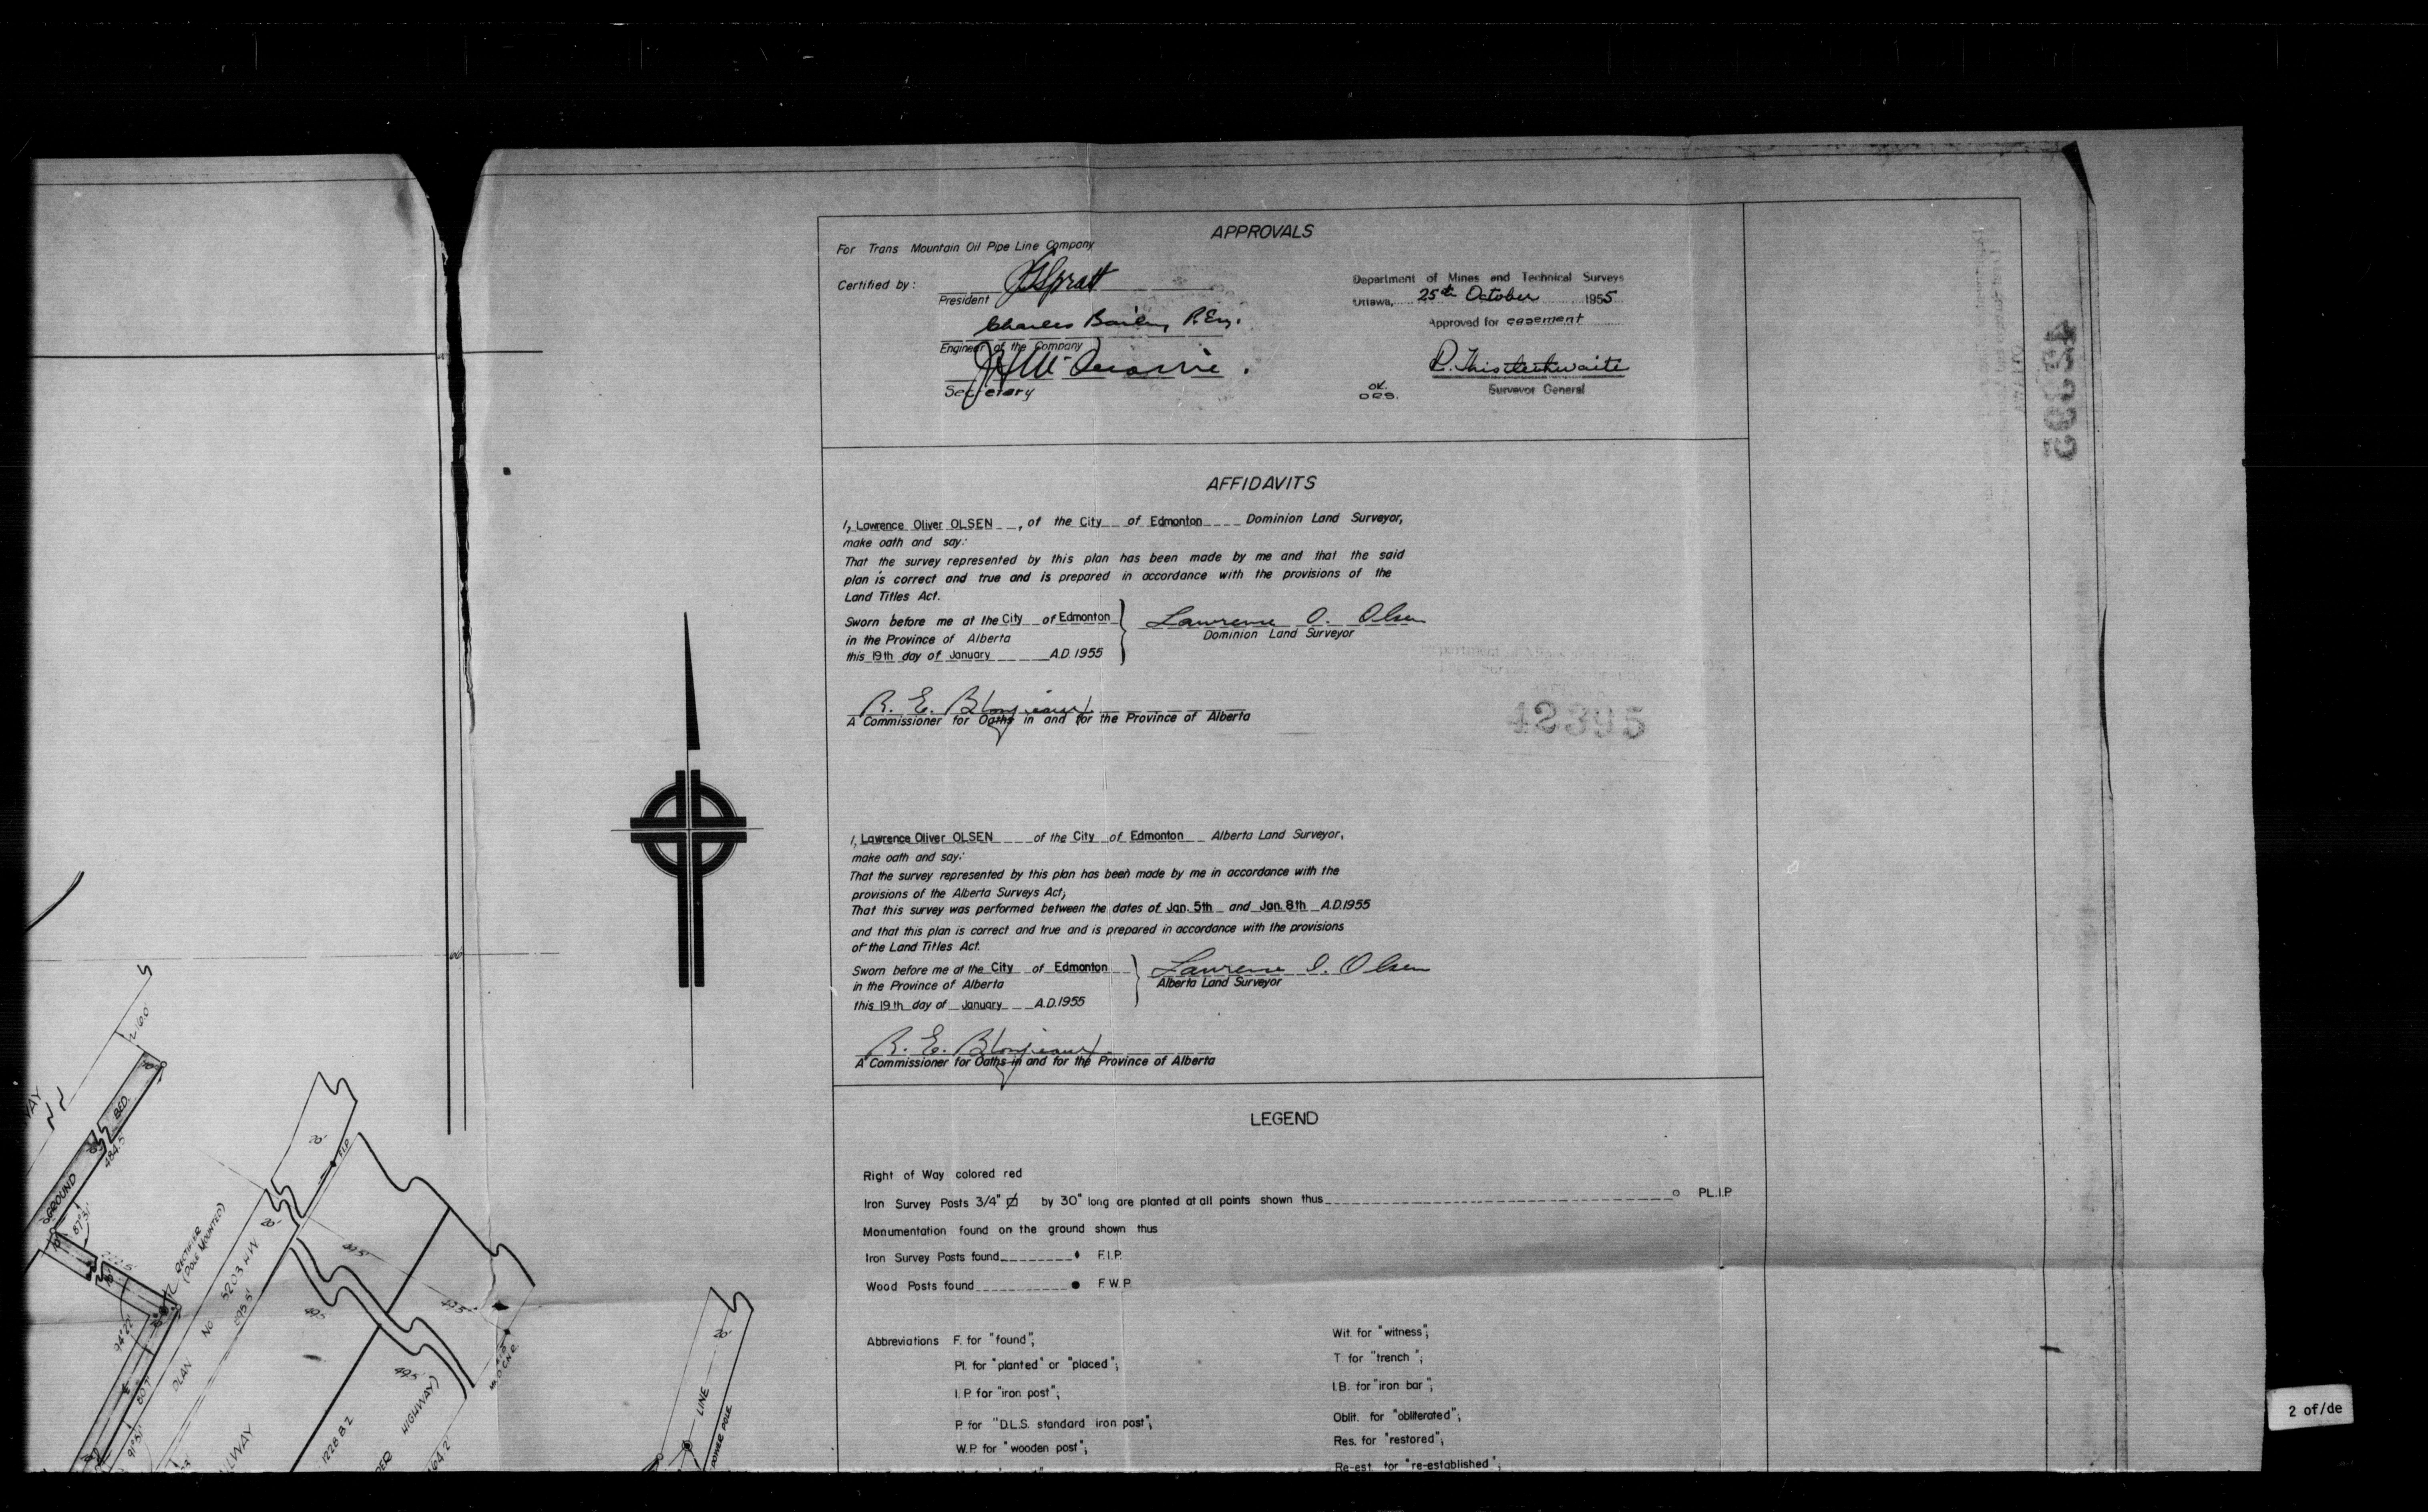 APPROVALS
For Trans Mountain Oil Pipe Line Company
Certified by:
President
Charles Bailey P.Eng.
Engineer of the Company
Secretary
Department of Mines and Technical Surveys
Ottawa, 25th October 1955
Approved for easement
R. Thistlethwaite
Surveyor General
OK.
D.R.S.
42395
AFFIDAVITS
I, Lawrence Oliver OLSEN, of the City of Edmonton Dominion Land Surveyor,
make oath and say:
That the survey represented by this plan has been made by me and that the said
plan is correct and true and is prepared in accordance with the provisions of the
Land Titles Act.
Sworn before me at the City of Edmonton
in the Province of Alberta
this 19th day of January A.D. 1955
Lawrence O. Olsen
Dominion Land Surveyor
R. E.
A Commissioner for Oaths in and for the Province of Alberta
42395
I, Lawrence Oliver OLSEN of the City of Edmonton Alberta Land Surveyor,
make oath and say:
That the survey represented by this plan has been made by me in accordance with the
provisions of the Alberta Surveys Act;
That this survey was performed between the dates of Jan. 5th and Jan. 8th A.D. 1955
and that this plan is correct and true and is prepared in accordance with the provisions
of the Land Titles Act.
Sworn before me at the City of Edmonton
in the Province of Alberta
this 19th day of January A.D. 1955
Lawrence O. Olsen
Alberta Land Surveyor
R. E.
A Commissioner for Oaths in and for the Province of Alberta
LEGEND
Right of Way colored red
Iron Survey Posts 3/4" by 30" long are planted at all points shown thus PL.I.P.
Monumentation found on the ground shown thus
Iron Survey Posts found F.I.P.
Wood Posts found F.W.P.
Abbreviations F. for "found";
Pl. for "planted" or "placed";
I.P. for "iron post";
P. for "D.L.S. standard iron post";
W.P. for "wooden post";
Wit. for "witness";
T. for "trench";
I.B. for "iron bar";
Oblit. for "obliterated";
Res. for "restored";
Re-est. for "re-established";
216.0'
BED.
484.5
GROUND
87°31'
RECTIFIER
(POLE MOUNTED)
20'
F.I.P.
20'
PLAN No 5203 HW
295.5'
49.5'
49.5'
49.5
49.5
94°22'
91°51'
1228 BZ
HIGHWAY)
164.2'
20'
LINE
POWER POLE
2 of/de